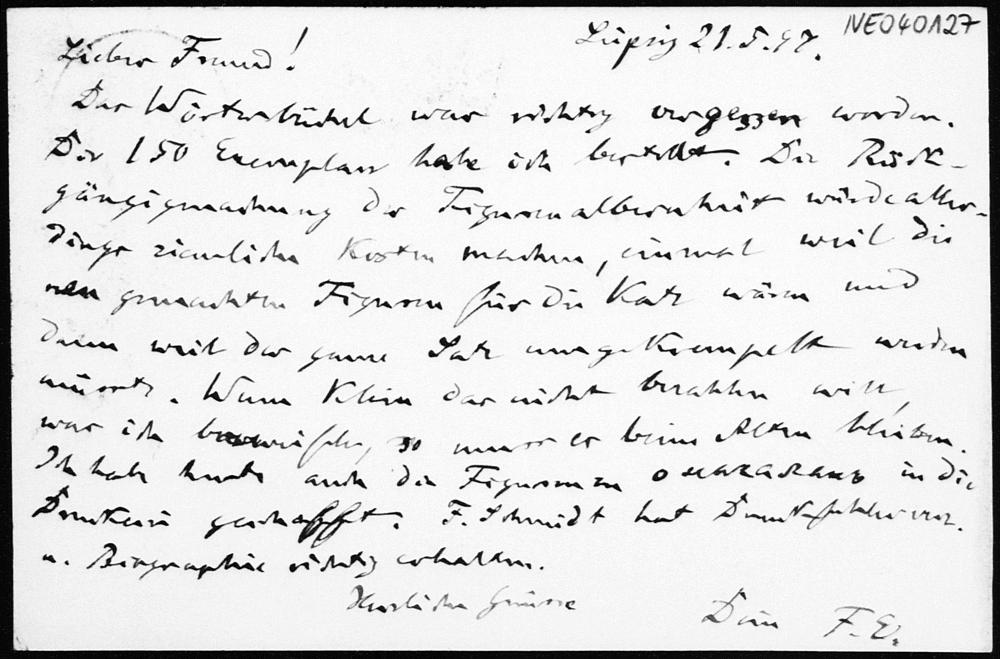 NE040127
Leipzig 21.5.97.
Lieber Freund!
Das Wörterbüchel war richtig vergessen worden.
Die 150 Exemplare habe ich bestellt. Die Rück-
gängigmachung der Figurenalbernheit würde aller-
dings ziemliche Kosten machen, einmal weil die
neu gemachten Figuren für die Katz wären und
dann weil der ganze Satz umgekrempelt werden
müsste. Wenn Klein das nicht bezahlen will,
was ich bezweifele, so muss es beim Alten bleiben.
Ich habe heute auch die Figuren in die
Druckerei geschafft. F. Schmidt hat Druckfehlerverz.
u. Biographie richtig erhalten.
Herzliche Grüsse
Dein F. E.